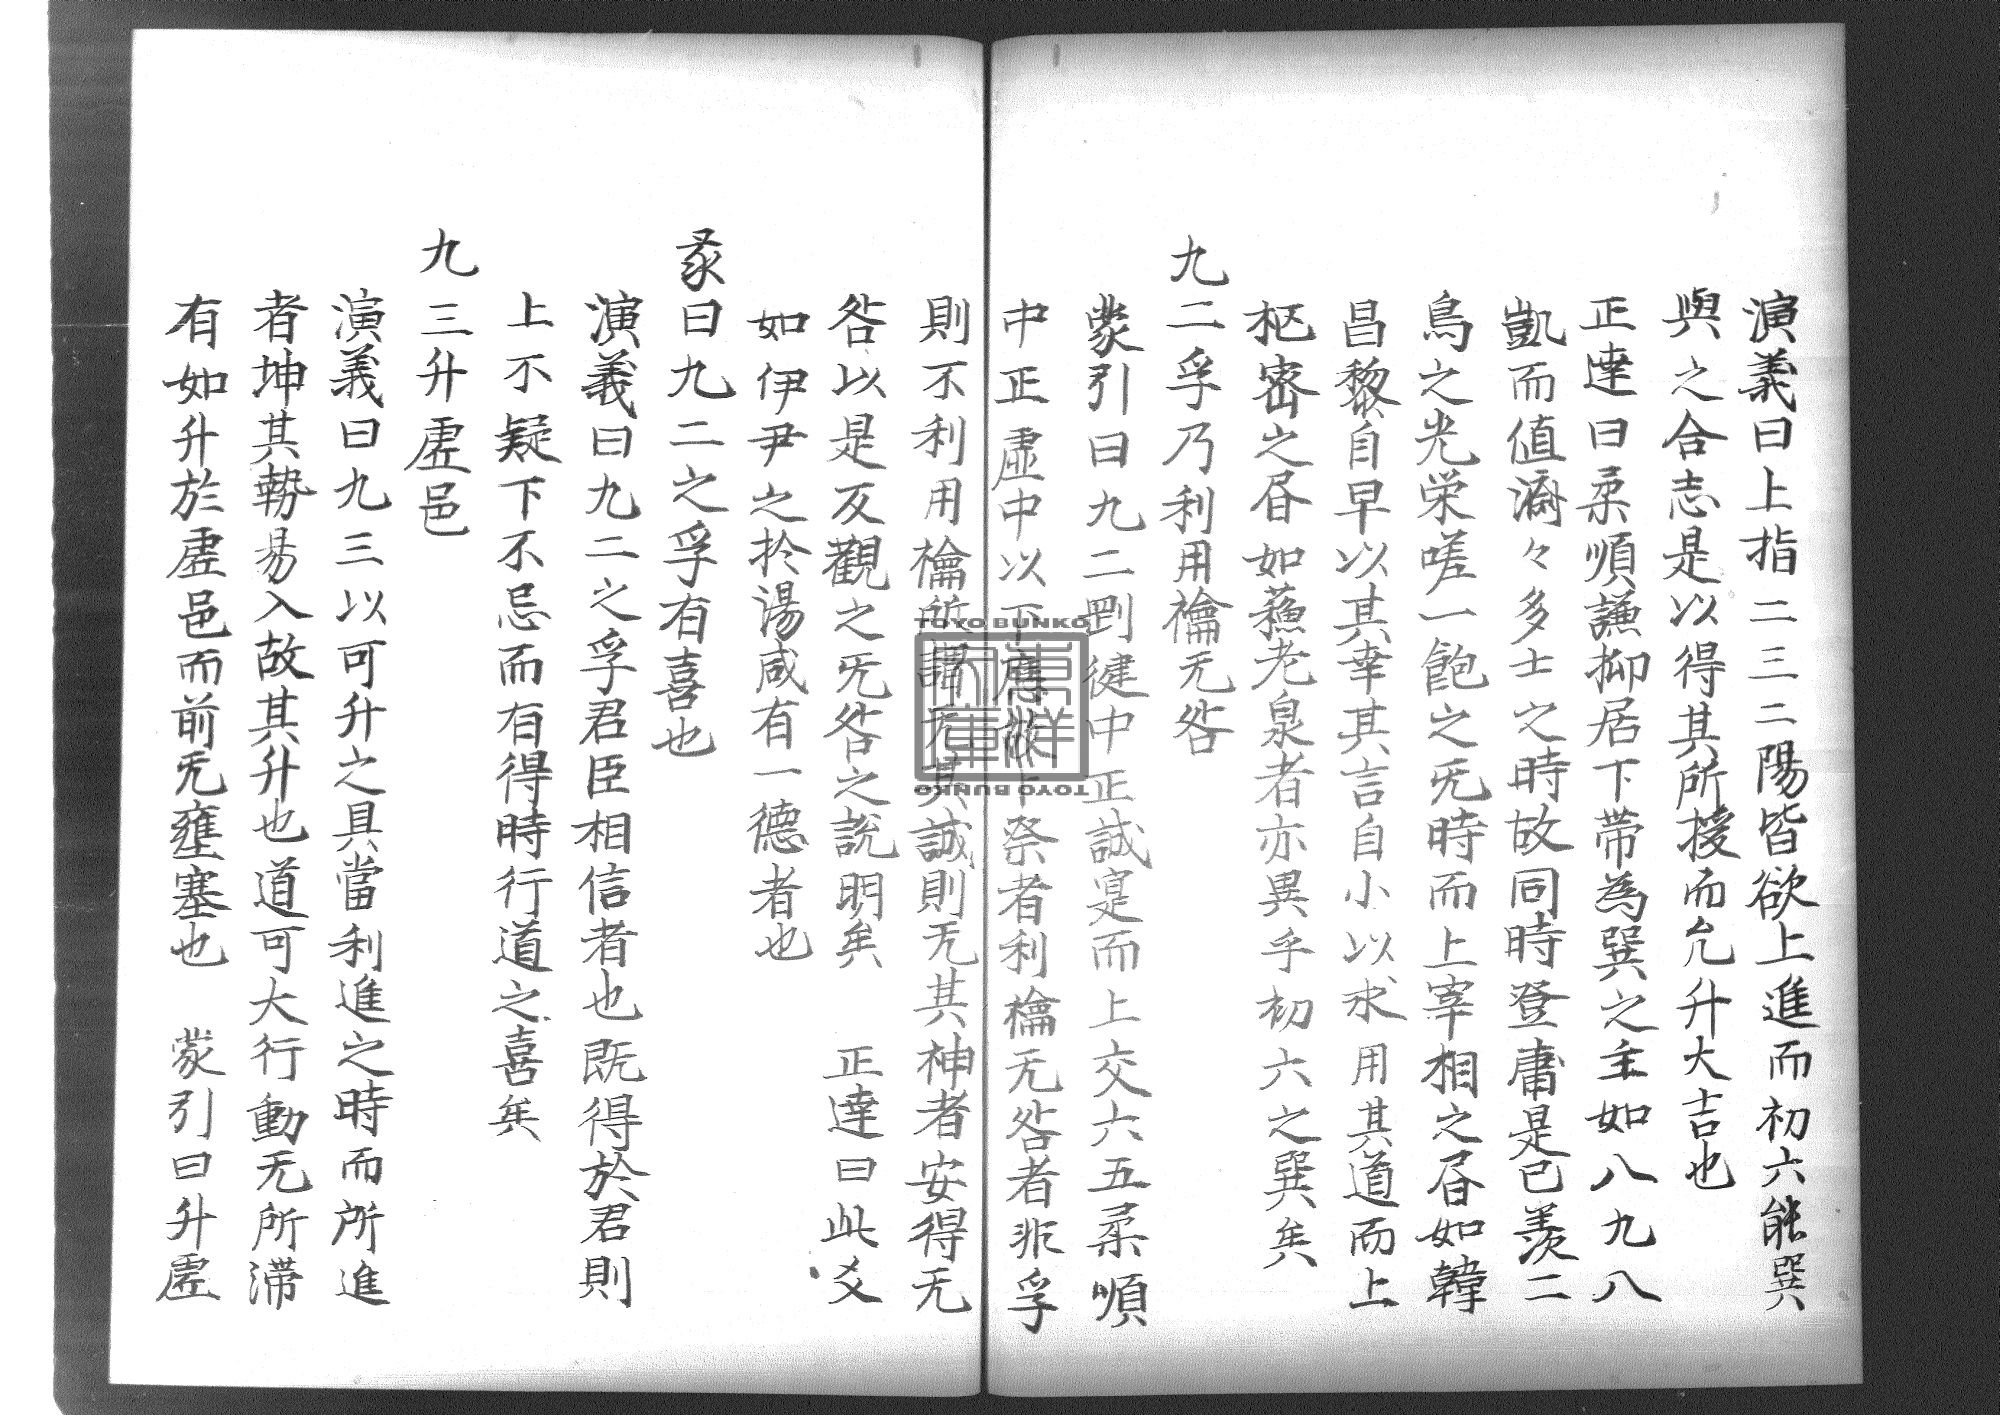 演義曰上指二三二陽皆欲上進而初六能巽
與之合志是以得其所援而允升大吉也
正達曰柔順謙抑居下帯為巽之主如八九八
凱而値濟々多士之時故同時登庸是已羨二
鳥之光栄嗟一飽之旡時而上宰相之昏如韓
昌黎自早以其幸其言自小以求用其道而上
枢密之昏如蘓老泉者亦異乎初六之巽矣
九二孚乃利用禴无咎
蒙引曰九二剛健中正誠寔而上交六五柔順
中正虚中以下應故卜祭者利禴无咎者非孚
則不利用禴所謂无其誠則无其神者安得无
咎以是反觀之旡咎之說明矣　正達曰此爻
如伊尹之於湯咸有一德者也
彖曰九二之孚有喜也
演義曰九二之孚君臣相信者也既得於君則
上不疑下不忌而有得時行道之喜矣
九三升虗邑
演義曰九三以可升之具當利進之時而所進
者坤其勢易入故其升也道可大行動无所滞
有如升於虗邑而前旡壅塞也　蒙引曰升虗
TOYO BUNKO
東洋文庫
TOYO BUNKO